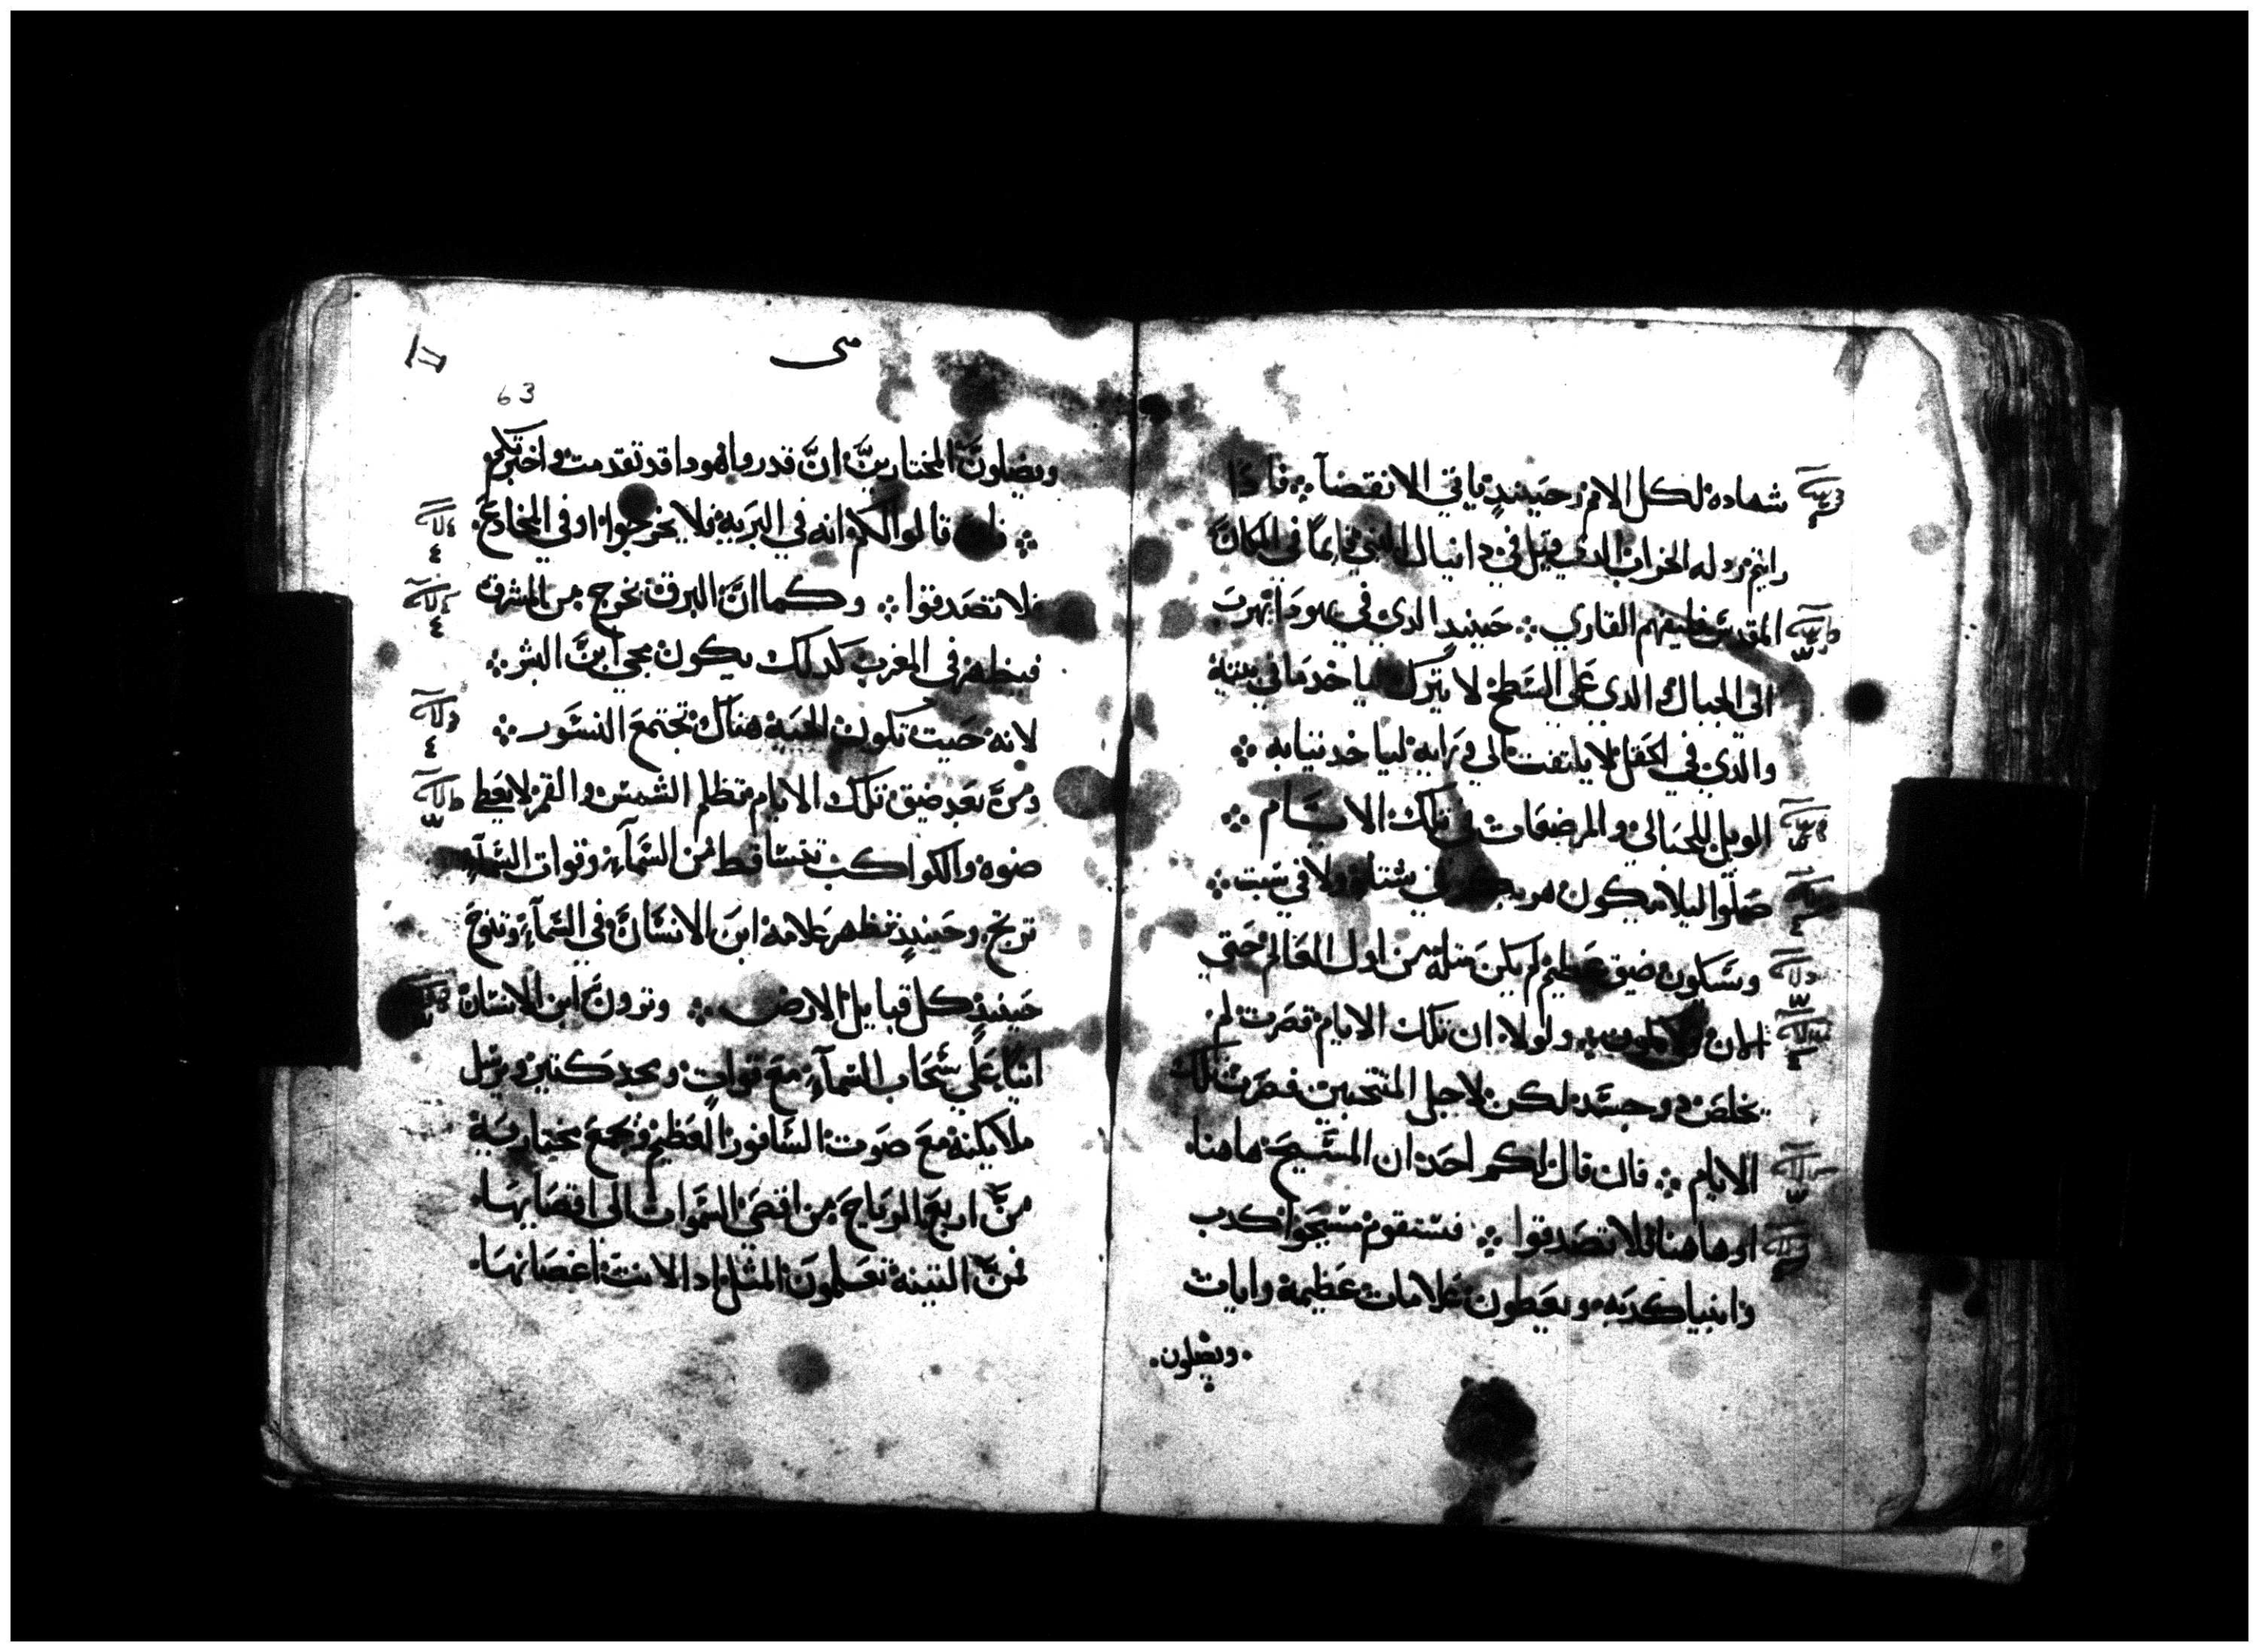 شهاده لكل الامم وحينيدٍ ياتي الانقضآ ⁘ فاذا
رايتم رذله الخراب الذي قيل في دانيال النبي قايمًا في المكان
المقدس فليفهم القاري ⁘ حينيدٍ الدي في يهودا يهرب
الي الجبال والدي علي السطح لا ينزل لياخد ما في بيته
والدي في الحقل لا يلتفت الي ورايه لياخد تيابه ⁘
الويل للحبالي والمرضعات في تلك الايام ⁘
صلّوا ليلا يكون هربكم في شتاء ولا في سبت ⁘
وسَيكون ضيق عظيم لم يكن متله من اول العالم حتي
الان ولا يكون ولولا ان تلك الايام قصرت لم
يخلص دو جسَد لكن لاجل المنتخبين قصرت تلك
الايام ⁘ فان قال لكم احد ان المسَيح هاهنا
او هاهنا فلا تصَدقوا ⁘ فسَتقوم مسَيحوا كدب
وانبيا كدبه ويعطون علامات عظيمة وايات
ويضلون
متى
63
ويضلون المختارين انَّ قدروا هودا قد تقدمت واخبرتكم
⁘ فان قالوا لكم انه في البرية فلا تخرجوا او في المخادع
فلا تصَدقوا ⁘ وكما انَّ البرق يخرج من المشرق
فيظهر في المغرب كدلك يكون مجي ابن البشر ⁘
لانه حيت تكون الجتة هناك تجتمع النسَور ⁘
ومن بعد ضيق تلك الايام تظلم الشمس والقمر لا يعطي
ضوه والكواكب تتسَاقط من السَّمآء وقوات السَّمآء
ترتج وحينيدٍ تظهر علامة ابن الانسَان في السَّمآء وتنوح
حينيدٍ كل قبايل الارض ⁘ وترون ابن الانسَان
اتيًا علي سَحَاب السمآء مع قوات ومجد كتير ويرسل
ملايكته مع صَوت السَّافور العظيم فتجمع مختاريه
منَّ اربع الرياح من اقصَي السَّموات الي اقصَايها
فمنَّ التينة تعلمون المثل ادا لانت اغصَانها